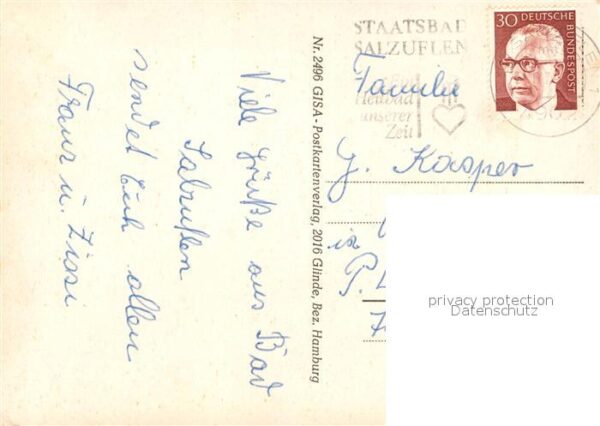 Viele Grüße aus Bad
Salzuflen
sendet Euch allen
Franz u. Zissi
Nr. 2496 GISA-Postkartenverlag, 2016 Glinde, Bez. Hamburg
STAATSBAD
SALZUFLEN
Heilbad
unserer
Zeit
30 DEUTSCHE
BUNDESPOST
Familie
G. Kasper
in
privacy protection
Datenschutz